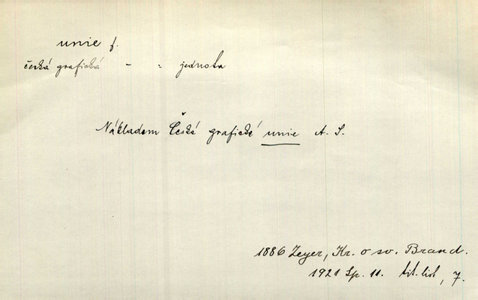 unie f.
česká grafická - = jednota
Nákladem České grafické unie A. S.
1886 Zeyer, Kr. o sv. Brand.
1921 Sp. 11. tit. list, 7.